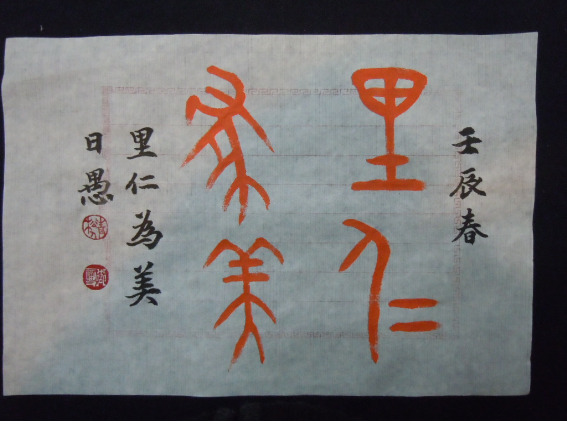 壬辰春
里仁
為美
里仁為美
日愚